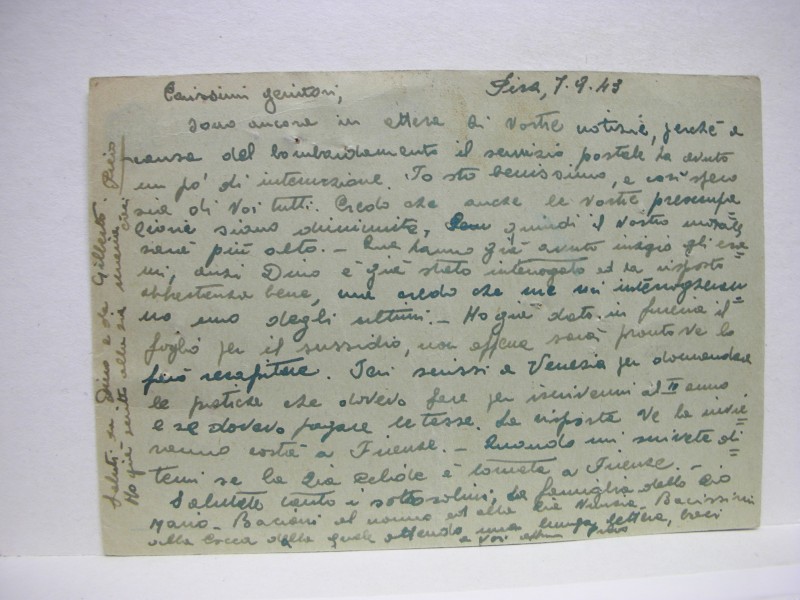 Pisa, 7-9-43
Carissimi genitori,
Sono ancora in attesa di vostre notizie, perché a
causa del bombardamento il servizio postale ha avuto
un po' di interruzione. Io sto benissimo, e così spero
sia di voi tutti. Credo che anche le vostre preoccupa=
zioni siano diminuite, quindi il vostro morale
sarà più alto. - Qua hanno già avuto inizio gli esa=
mi, anzi Dino è già stato interrogato ed ha risposto
abbastanza bene, me credo che me mi interrogheran=
no uno degli ultimi. - Ho già dato in fureria il
foglio per il sussidio, non appena sarà pronto ve lo
farò recapitare. Ieri scrissi a Venezia per domandare
le pratiche che dovevo fare per iscrivermi al IV anno
e se dovevo pagare le tasse. La risposta ve la invie=
ranno costà a Firenze. - Quando mi scrivete di=
temi se la zia Zelide è tornata a Firenze. -
Salutate tanto i la famiglia dello zio
Mario - Bacioni al nonno ed alla zia Nunzia - Bacissimi
alla Cocca della quale attendo una lunga lettera, baci
a voi
Saluti da Dino e da Gilberto. Piero
Ho già scritto alla zia